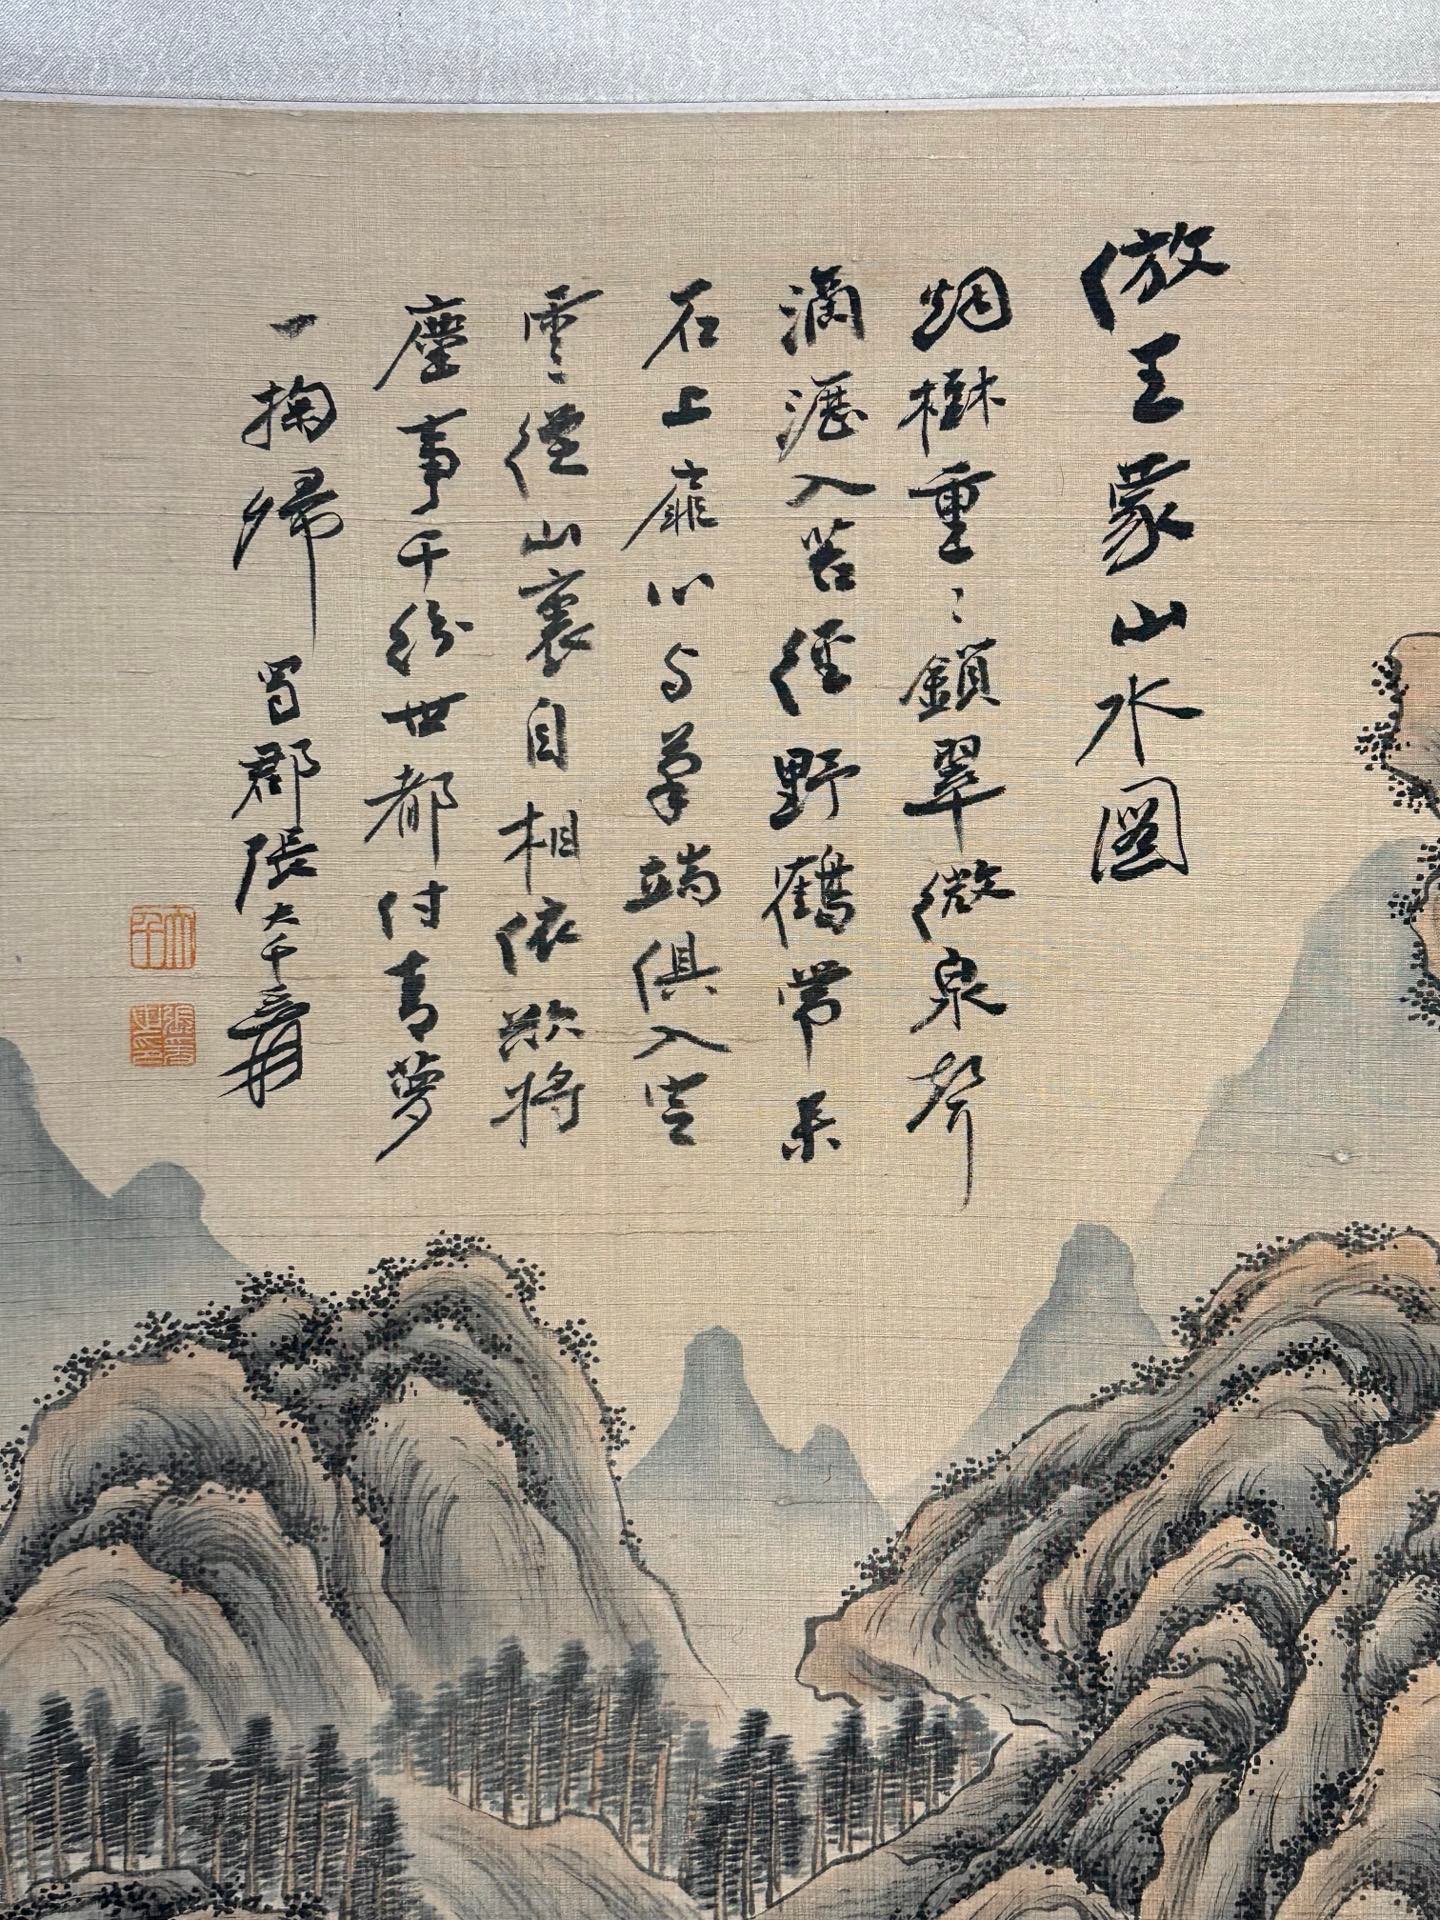 倣王蒙山水圖
烟樹重重鎖翠微泉聲
滴瀝入苔徑野鶴帶禾
石上扉心與筆端俱入空
雲從山裏自相依欲將
塵事千紛世都付青夢
一掬歸 蜀郡張大千爰
大千
張爰